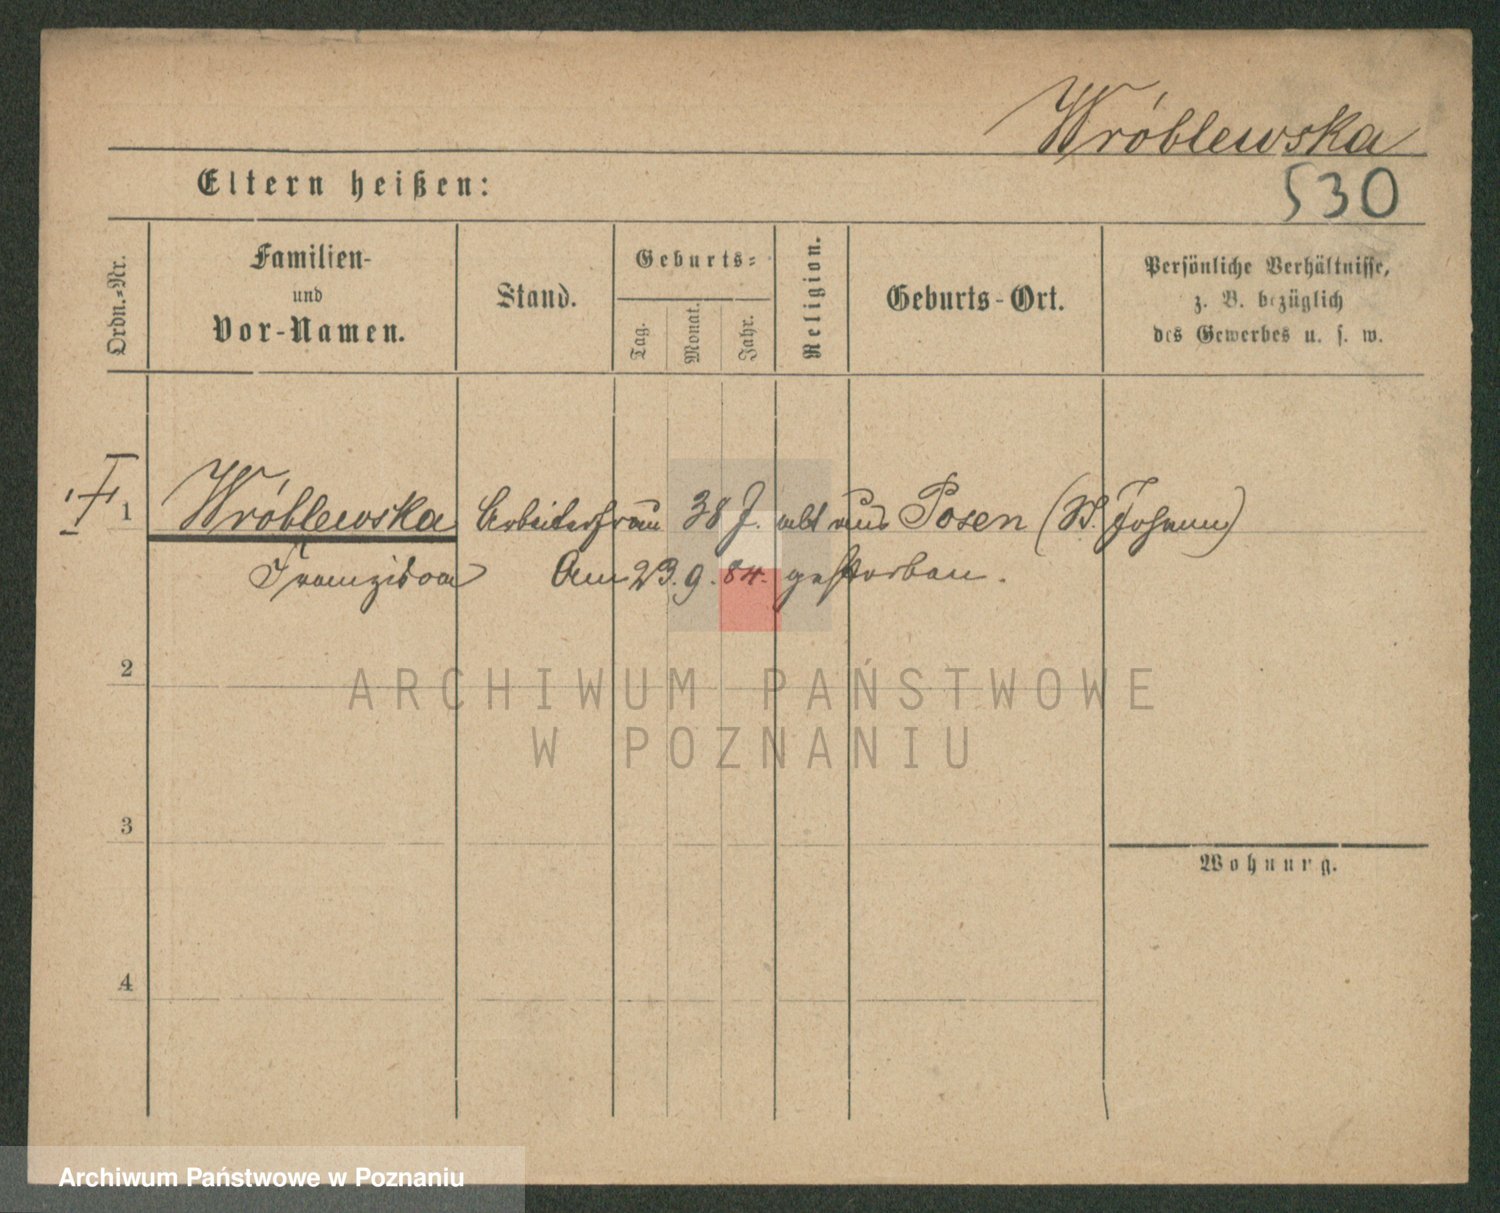 Wróblewska
Eltern heißen:
530
Ordn.-Nr.
Familien-
und
Vor-Namen.
Stand.
Geburts-
Tag.
Monat.
Jahr.
Religion.
Geburts-Ort.
Persönliche Verhältnisse,
z. B. bezüglich
des Gewerbes u. s. w.
1 Wróblewska Arbeiterfrau 38 J. alt aus Posen (W. Johann)
Franziska Am 23.9.84. gestorben.
2
ARCHIWUM PAŃSTWOWE
W POZNANIU
3
Wohnung.
4
Archiwum Państwowe w Poznaniu